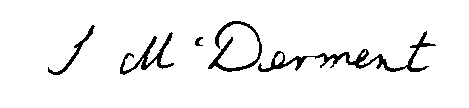 J M'Derment